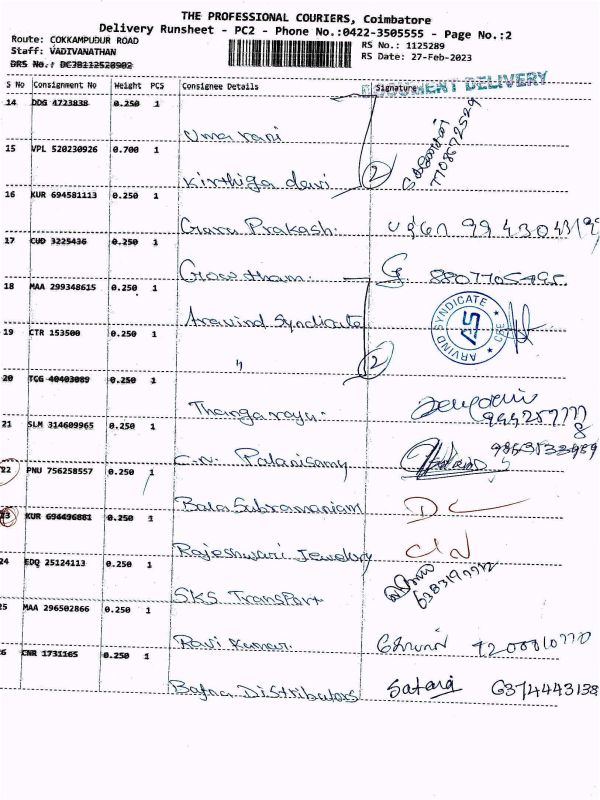 THE PROFESSIONAL COURIERS, Coimbatore
Delivery Runsheet - PC2 - Phone No.:0422-3505555 - Page No.:2
Route: COKKAMPUDUR ROAD
RS No.: 1125289
Staff: VADIVANATHAN
RS Date: 27-Feb-2023
DRS No.: DC3B112528902
S No Consignment No Weight PCS Consignee Details Signature
DOCUMENT DELIVERY
14 DDG 4723838 0.250 1
Uma rani
15 VPL 520230926 0.700 1
Kirthiga devi 2
16 KUR 694581113 0.250 1
Guru Prakash.
17 CUD 3225436 0.250 1
Gowtham. 8807705495
18 MAA 299348615 0.250 1
Aravind Syndicate
ARVIND SYNDICATE CBE AS
19 CTR 153500 0.250 1
" 2
20 TCG 40403089 0.250 1
Thangaraju.
21 SLM 314609965 0.250 1
C.N. Palanisamy
22 PNU 756258557 0.250 1
Bala Subramaniam
23 KUR 694496881 0.250 1
Rajeshwari Jewelery
24 EDQ 25124113 0.250 1
SKS Transport
25 MAA 296502866 0.250 1
Ravi Kumar.
26 CNR 1731165 0.250 1
Bafna Distributors 6374443138